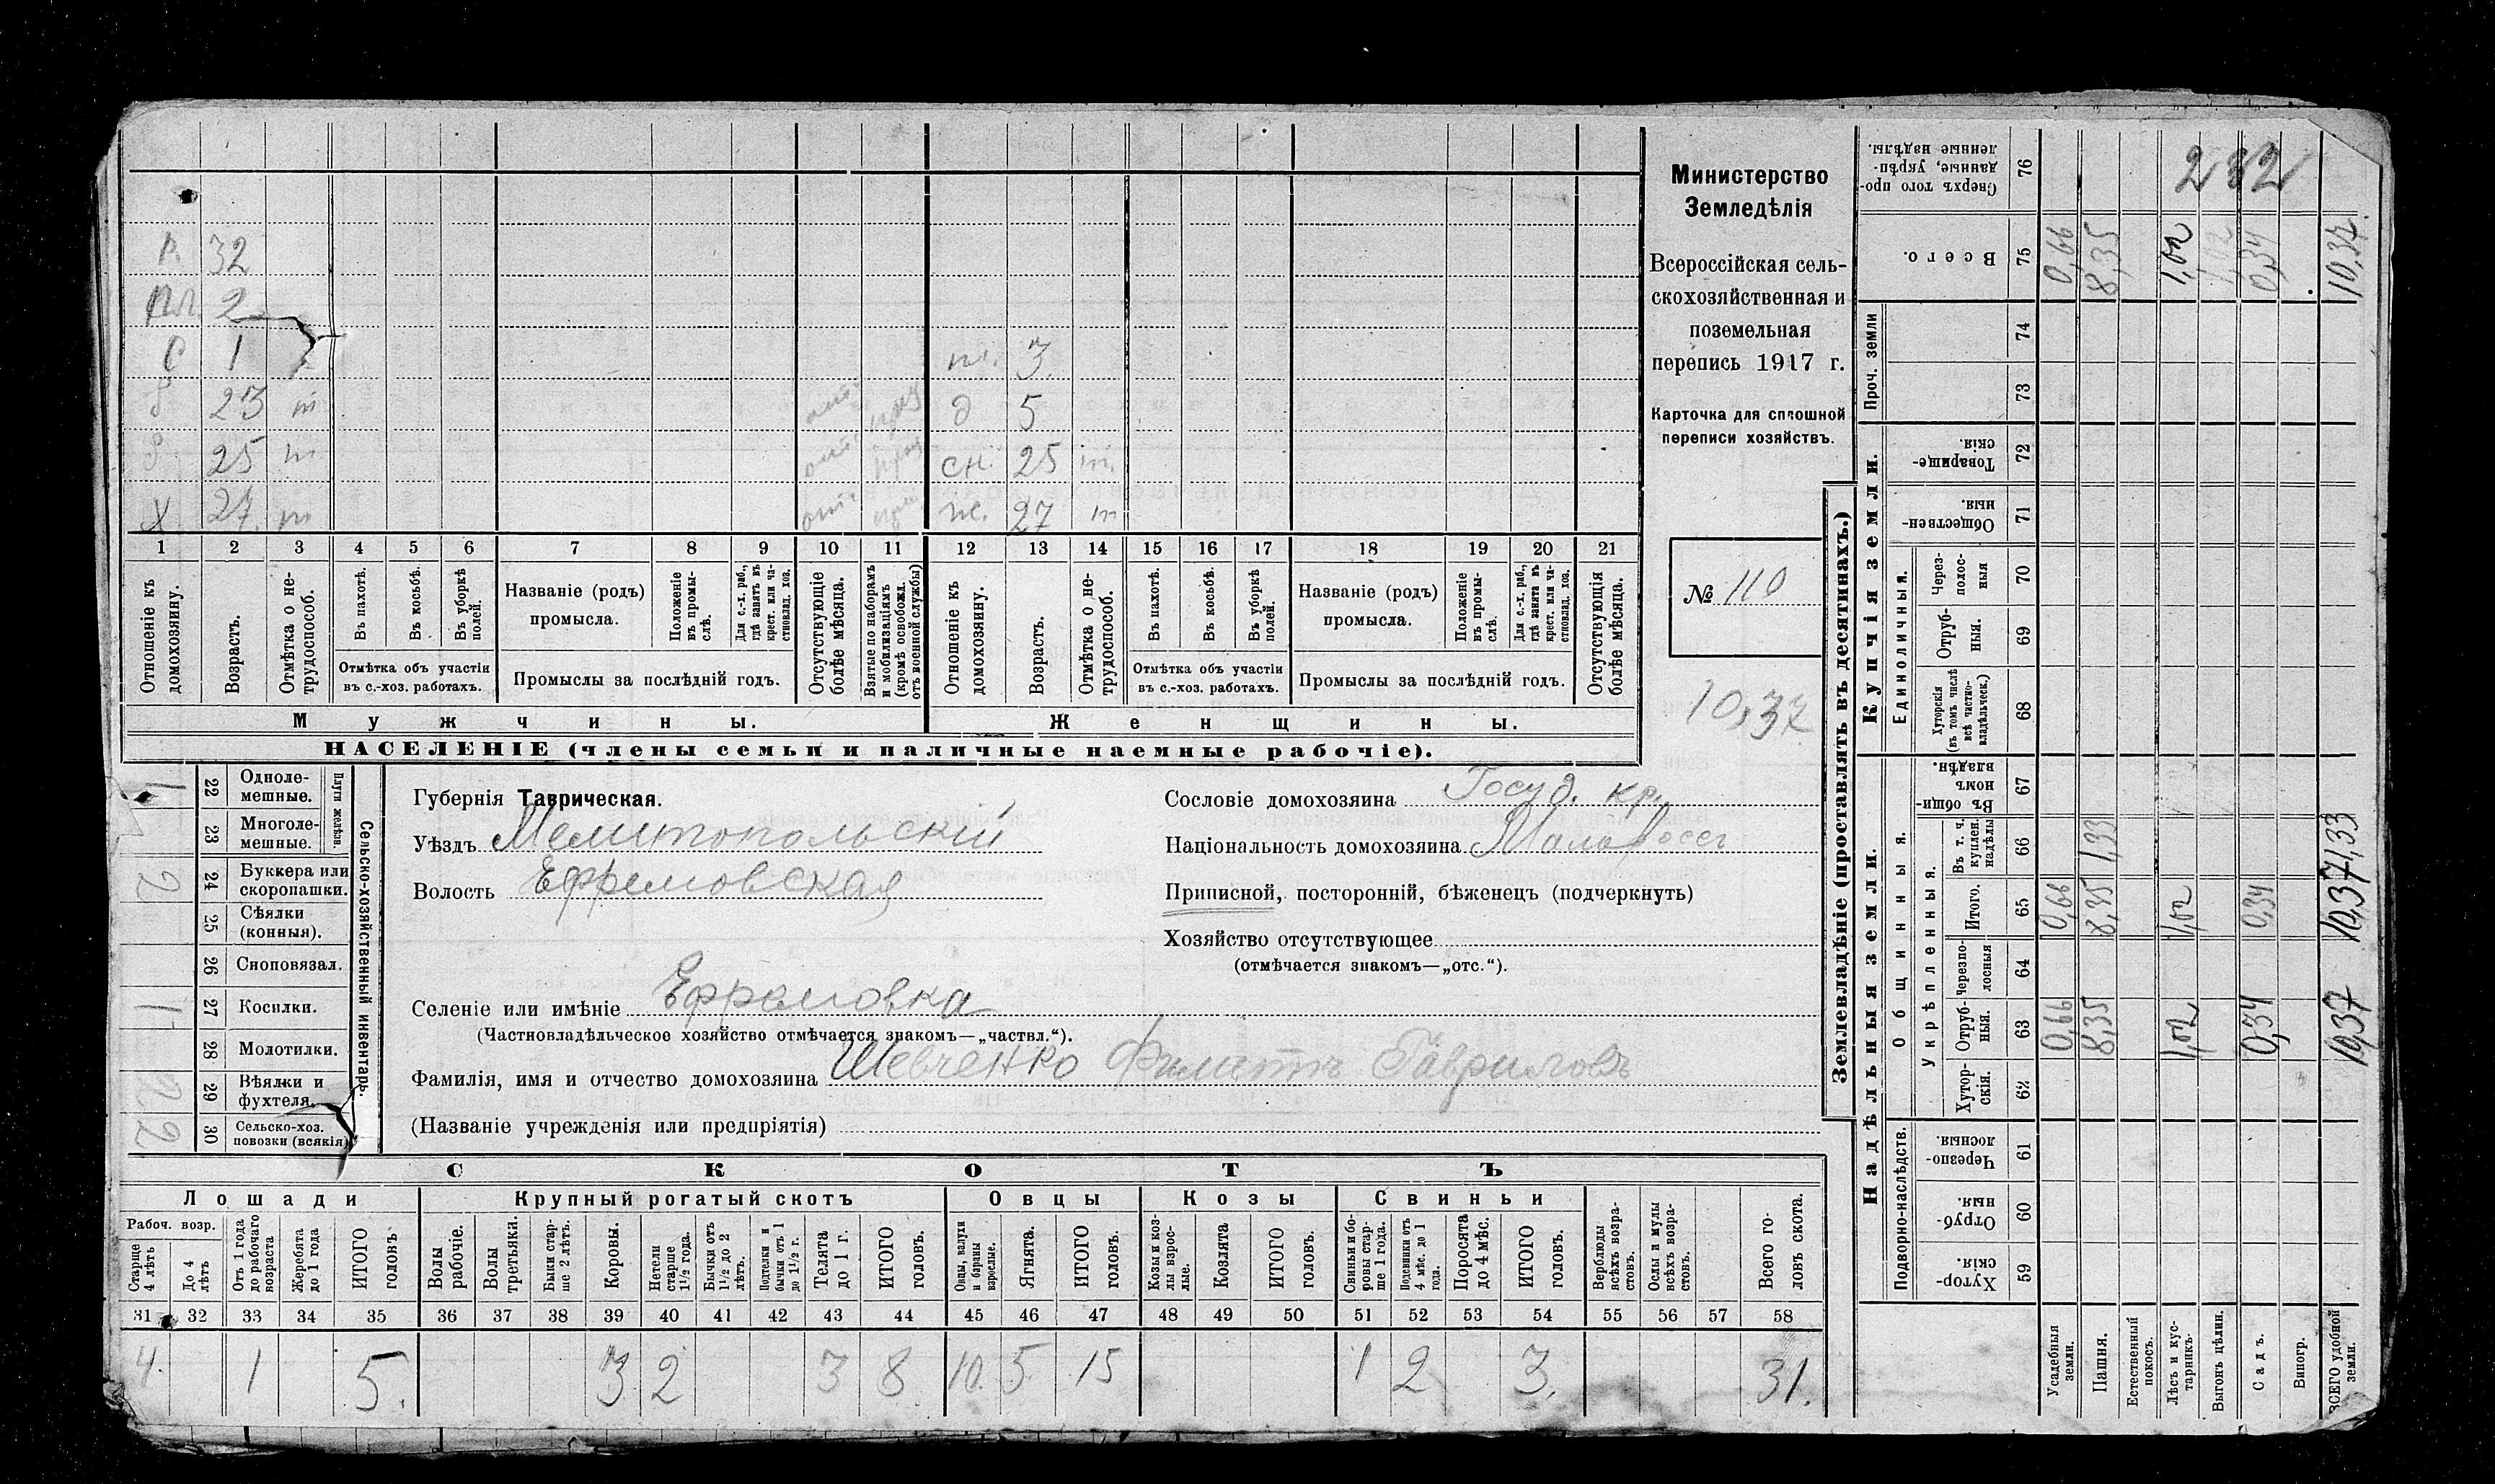 Р. 32
Пл. 2
С 1 ж. 3
Б 23 т отс приз д 5
Б 25 т отс приз сн. 25 т.
Х 27. т отс приз же. 27 т
1 2 3 4 5 6 7 8 9 10 11 12 13 14 15 16 17 18 19 20 21
Отношеніе къ домохозяину.
Возрастъ.
Отмѣтка о не-трудоспособ.
Въ пахотѣ.
Въ косьбѣ.
Въ уборкѣ полей.
Отмѣтка объ участіи въ с.-хоз. работахъ.
Названіе (родъ) промысла.
Положеніе въ промы-слѣ.
Для с.-х. раб., гдѣ занятъ въ крест. или ча-стновлад. хоз.
Промыслы за послѣдній годъ.
Отсутствующіе болѣе мѣсяца.
Взятые по наборамъ и мобилизаціямъ (кромѣ освобожд. отъ военной службы)
Отношеніе къ домохозяину.
Возрастъ.
Отмѣтка о не-трудоспособ.
Въ пахотѣ.
Въ косьбѣ.
Въ уборкѣ полей.
Отмѣтка объ участіи въ с.-хоз. работахъ.
Названіе (родъ) промысла.
Положеніе въ промы-слѣ.
Для с.-х. раб., гдѣ занята въ крест. или ча-стновлад. хоз.
Промыслы за послѣдній годъ.
Отсутствующія болѣе мѣсяца.
Мужчины. Женщины.
НАСЕЛЕНІЕ (члены семьи и наличные наемные рабочіе).
Министерство
Земледѣлія
Всероссійская сель-
скохозяйственная и
поземельная
перепись 1917 г.
Карточка для сплошной
переписи хозяйствъ.
№ 110
10,37
22 Одноле-мешные.
23 Многоле-мешные.
Плуги желѣзн.
2 24 Буккера или скоропашки.
25 Сѣялки (конныя).
26 Сноповязал.
1 27 Косилки.
28 Молотилки.
2 29 Вѣялки и фухтеля.
2 30 Сельско-хоз. повозки (всякія)
Сельско-хозяйственный инвентарь.
Губернія Таврическая.
Уѣздъ Мелитопольскій
Волость Ефремовская
Сословіе домохозяина Госуд. кр.
Національность домохозяина Малоросс
Приписной, посторонній, бѣженецъ (подчеркнуть)
Хозяйство отсутствующее
(отмѣчается знакомъ—„отс.“).
Селеніе или имѣніе Ефремовка
(Частновладѣльческое хозяйство отмѣчается знакомъ—„частвл.“).
Фамилія, имя и отчество домохозяина Шевченко Филиппъ Гавриловъ
(Названіе учрежденія или предпріятія)
СКОТЪ
Лошади Крупный рогатый скотъ Овцы Козы Свиньи
Рабоч. возр.
Старше 4 лѣтъ
До 4 лѣтъ
Отъ 1 года до рабочаго возраста
Жеребята до 1 года
ИТОГО головъ
Волы рабочіе.
Волы третьяки.
Быки стар-ше 2 лѣтъ.
Коровы.
Нетели старше 1½ года.
Бычки отъ 1½ до 2 лѣтъ.
Подтелки и бычки отъ 1 до 1½ г.
Телята до 1 г.
ИТОГО головъ.
Овцы, валухи и бараны взрослые.
Ягнята.
ИТОГО головъ.
Козы и коз-лы взрос-лые.
Козлята
ИТОГО головъ.
Свиньи и бо-ровы стар-ше 1 года.
Подсвинки отъ 4 мѣс. до 1 года.
Поросята до 4 мѣс.
ИТОГО головъ.
Верблюды всѣхъ возра-стовъ.
Ослы и мулы всѣхъ возра-стовъ.
Всего го-ловъ скота.
31 32 33 34 35 36 37 38 39 40 41 42 43 44 45 46 47 48 49 50 51 52 53 54 55 56 57 58
4. 1 5. 3 2 3 8 10. 5 15 1 2 3. 31.
Землевладѣніе (проставлять въ десятинахъ.)
Купчія земли.
Надѣльныя земли.
232
76 Сверхъ того про-данные, укрѣп-ленные надѣлы.
75 Всего. 0,66 8,35 1,02 1,02 0,34 10,37
Проч. земли
74
73
72 Товарище-скія.
71 Обществен-ныя
Единоличныя.
70 Через-полос-ныя
69 Отруб-ныя.
68 Хуторскія (въ томъ числѣ всѣ частно-владѣльческ.)
67 Въ общи-номъ владѣн.
Общинныя.
Укрѣпленныя.
66 Въ т. ч. куплен. надѣлы 1,33 1,33
65 Итого. 0,66 8,35 1,02 0,34 10,37
64 Черезпо-лосныя
63 Отруб-ныя. 0,66 8,35 1,02 0,34 10,37
62 Хутор-скія.
Подворно-наслѣдств.
61 Черезпо-лосныя.
60 Отруб-ныя.
59 Хутор-скія.
Усадебныя земли.
Пашня.
Естественный покосъ.
Лѣсъ и кус-тарникъ.
Выгонъ цѣлин.
Садъ.
Виногр.
ВСЕГО удобной земли.